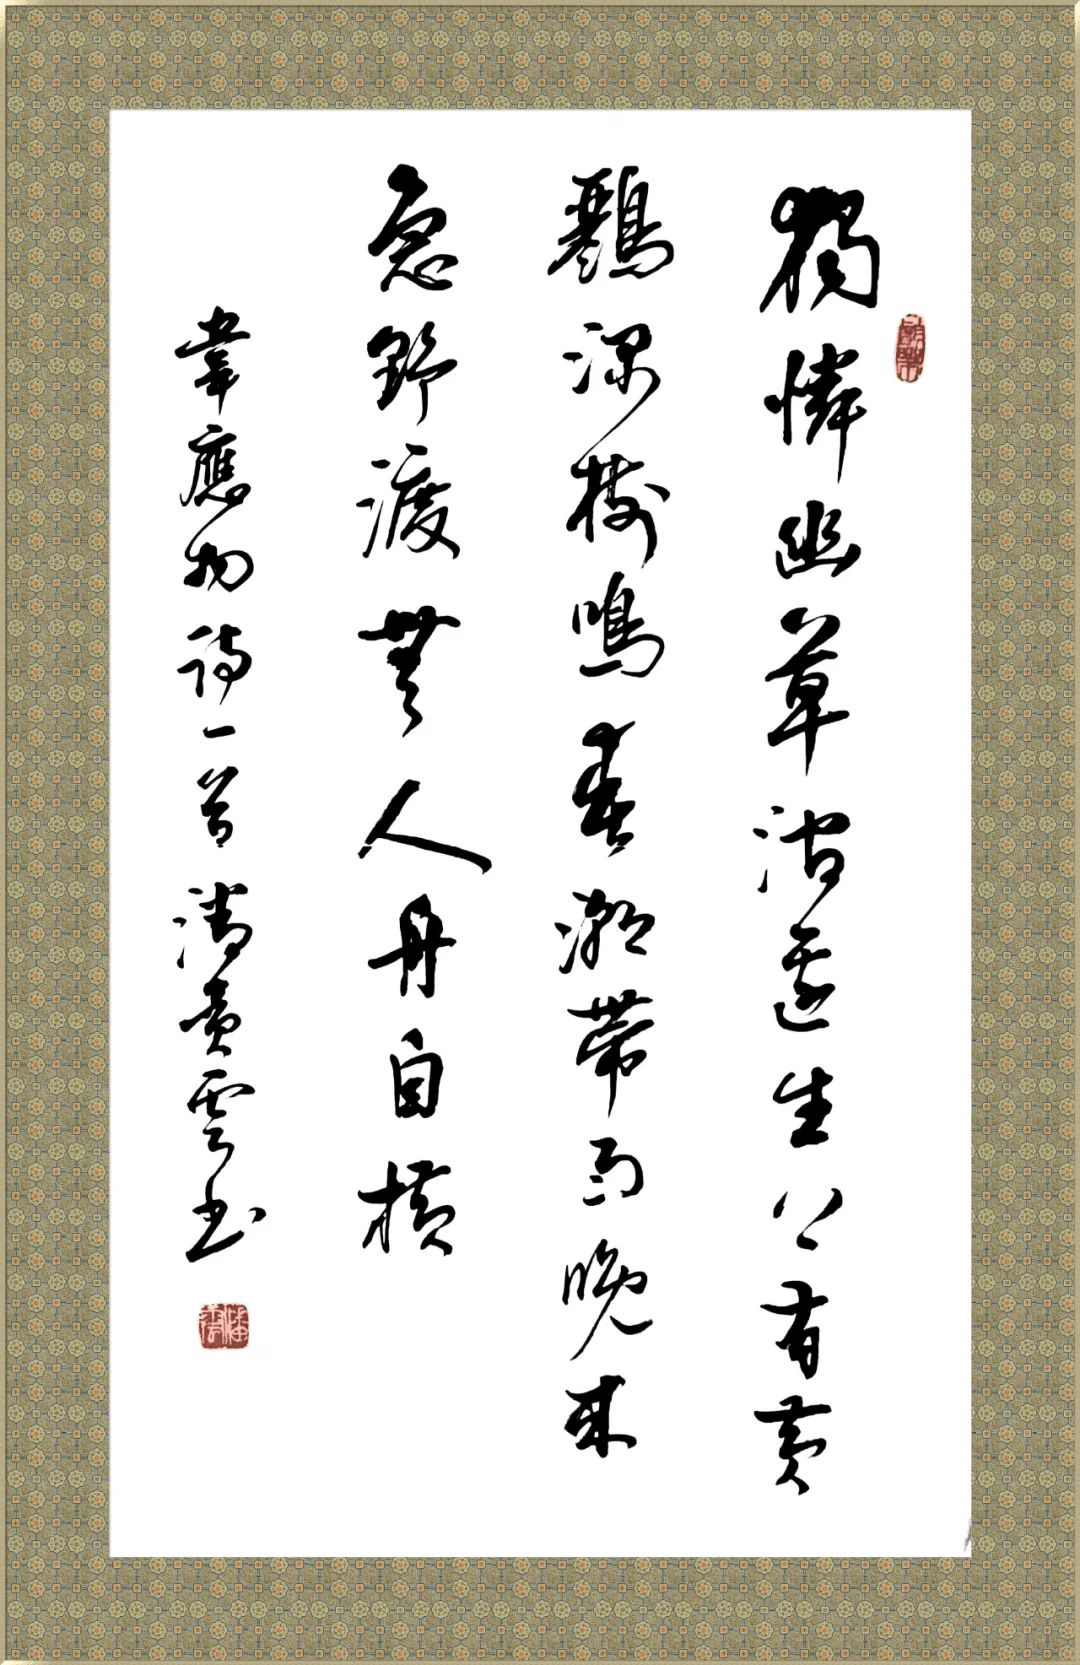 獨憐幽草澗邊生上有黃
鸝深樹鳴春潮帶雨晚來
急野渡無人舟自橫
韋應物詩一首潘雲书